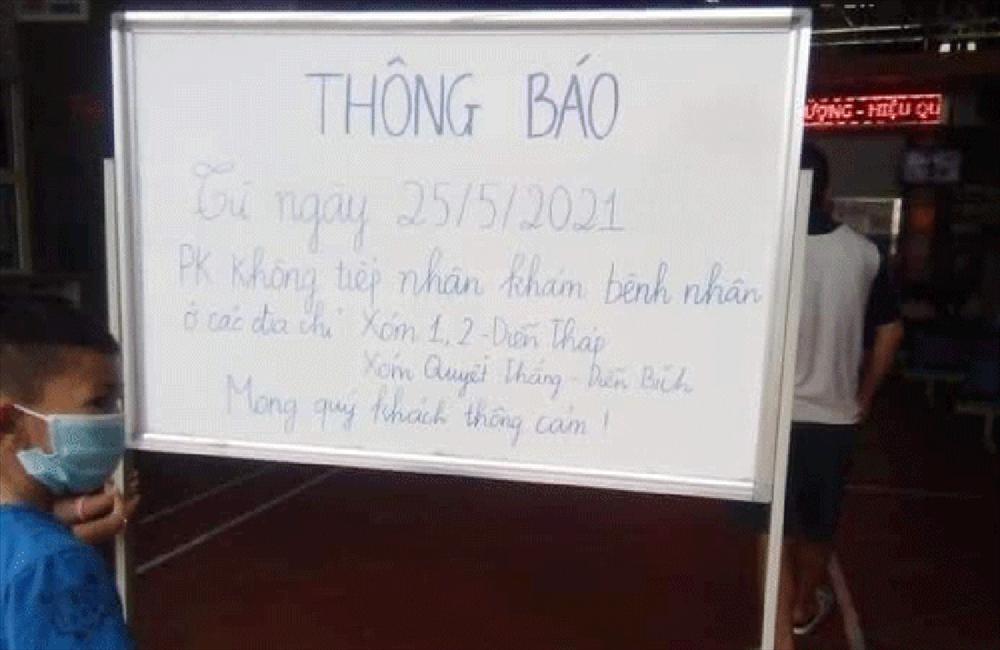 THÔNG BÁO
Từ ngày 25/5/2021
PK không tiếp nhận khám bệnh nhân
ở các địa chỉ Xóm 1, 2 - Diễn Tháp
Xóm Quyết Thắng - Diễn Bích
Mong quý khách thông cảm !
ƯỢNG - HIỆU QU